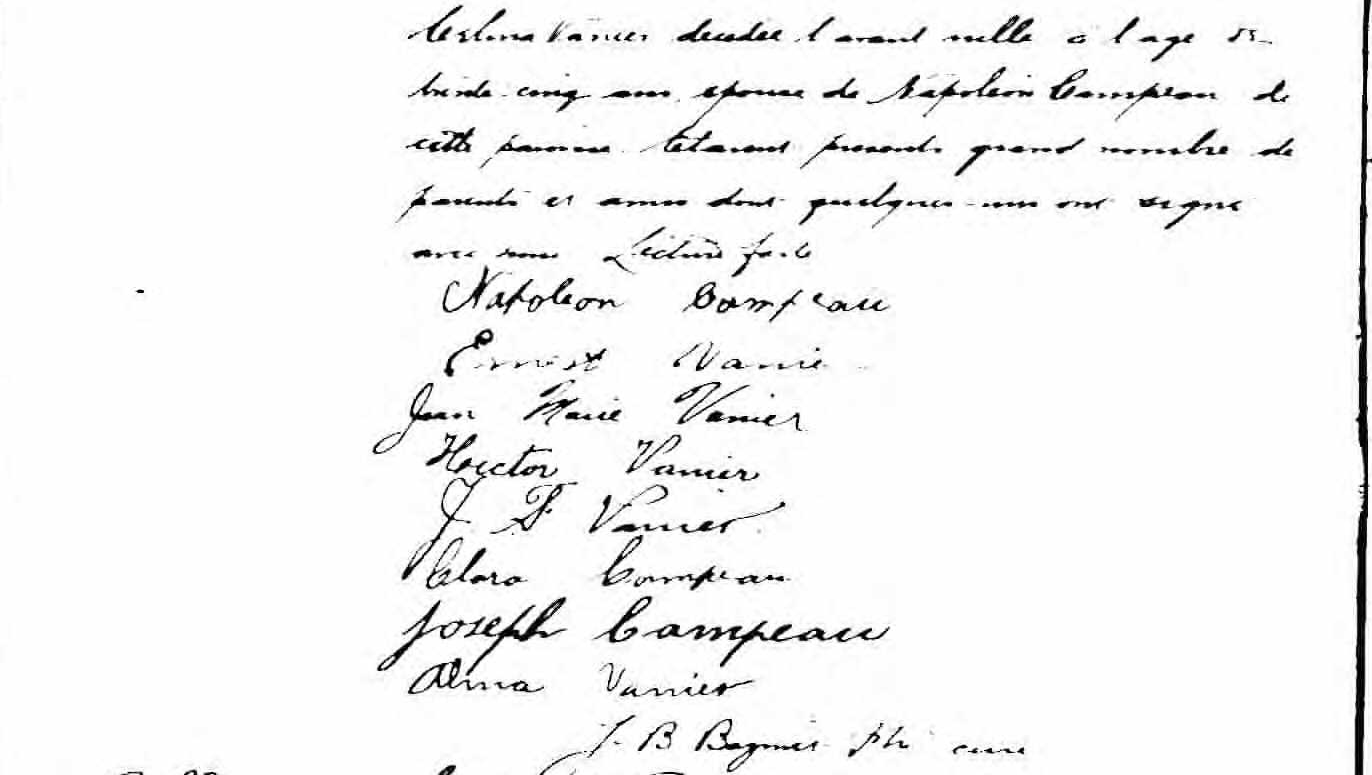 Vanier décédée l'avant veille à l'age de
trente-cinq ans, épouse de Napoléon Campeau de
cette paroisse. Etaient presents grand nombre de
parents et amis dont quelques-uns ont signé
avec nous Lecture faite
Napoleon Campeau
Ernest Vanie
Jean Marie Vanier
Hector Vanier
J. F Vanier
Clara Campeau
Joseph Campeau
Alma Vanier
J. B ptr curé